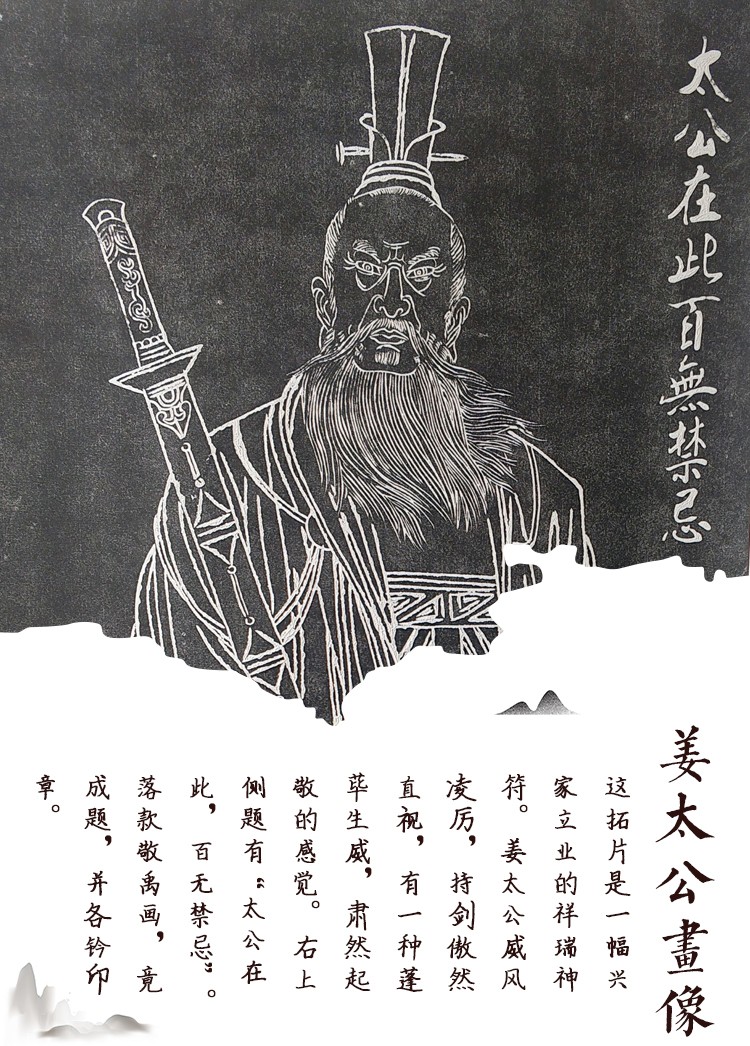 太公在此百無禁忌
姜太公畫像
这拓片是一幅兴
家立业的祥瑞神
符。姜太公威风
凌厉，持剑傲然
直视，有一种蓬
荜生威，肃然起
敬的感觉。右上
侧题有“太公在
此，百无禁忌”。
落款敬禹画，竟
成题，并各钤印
章。